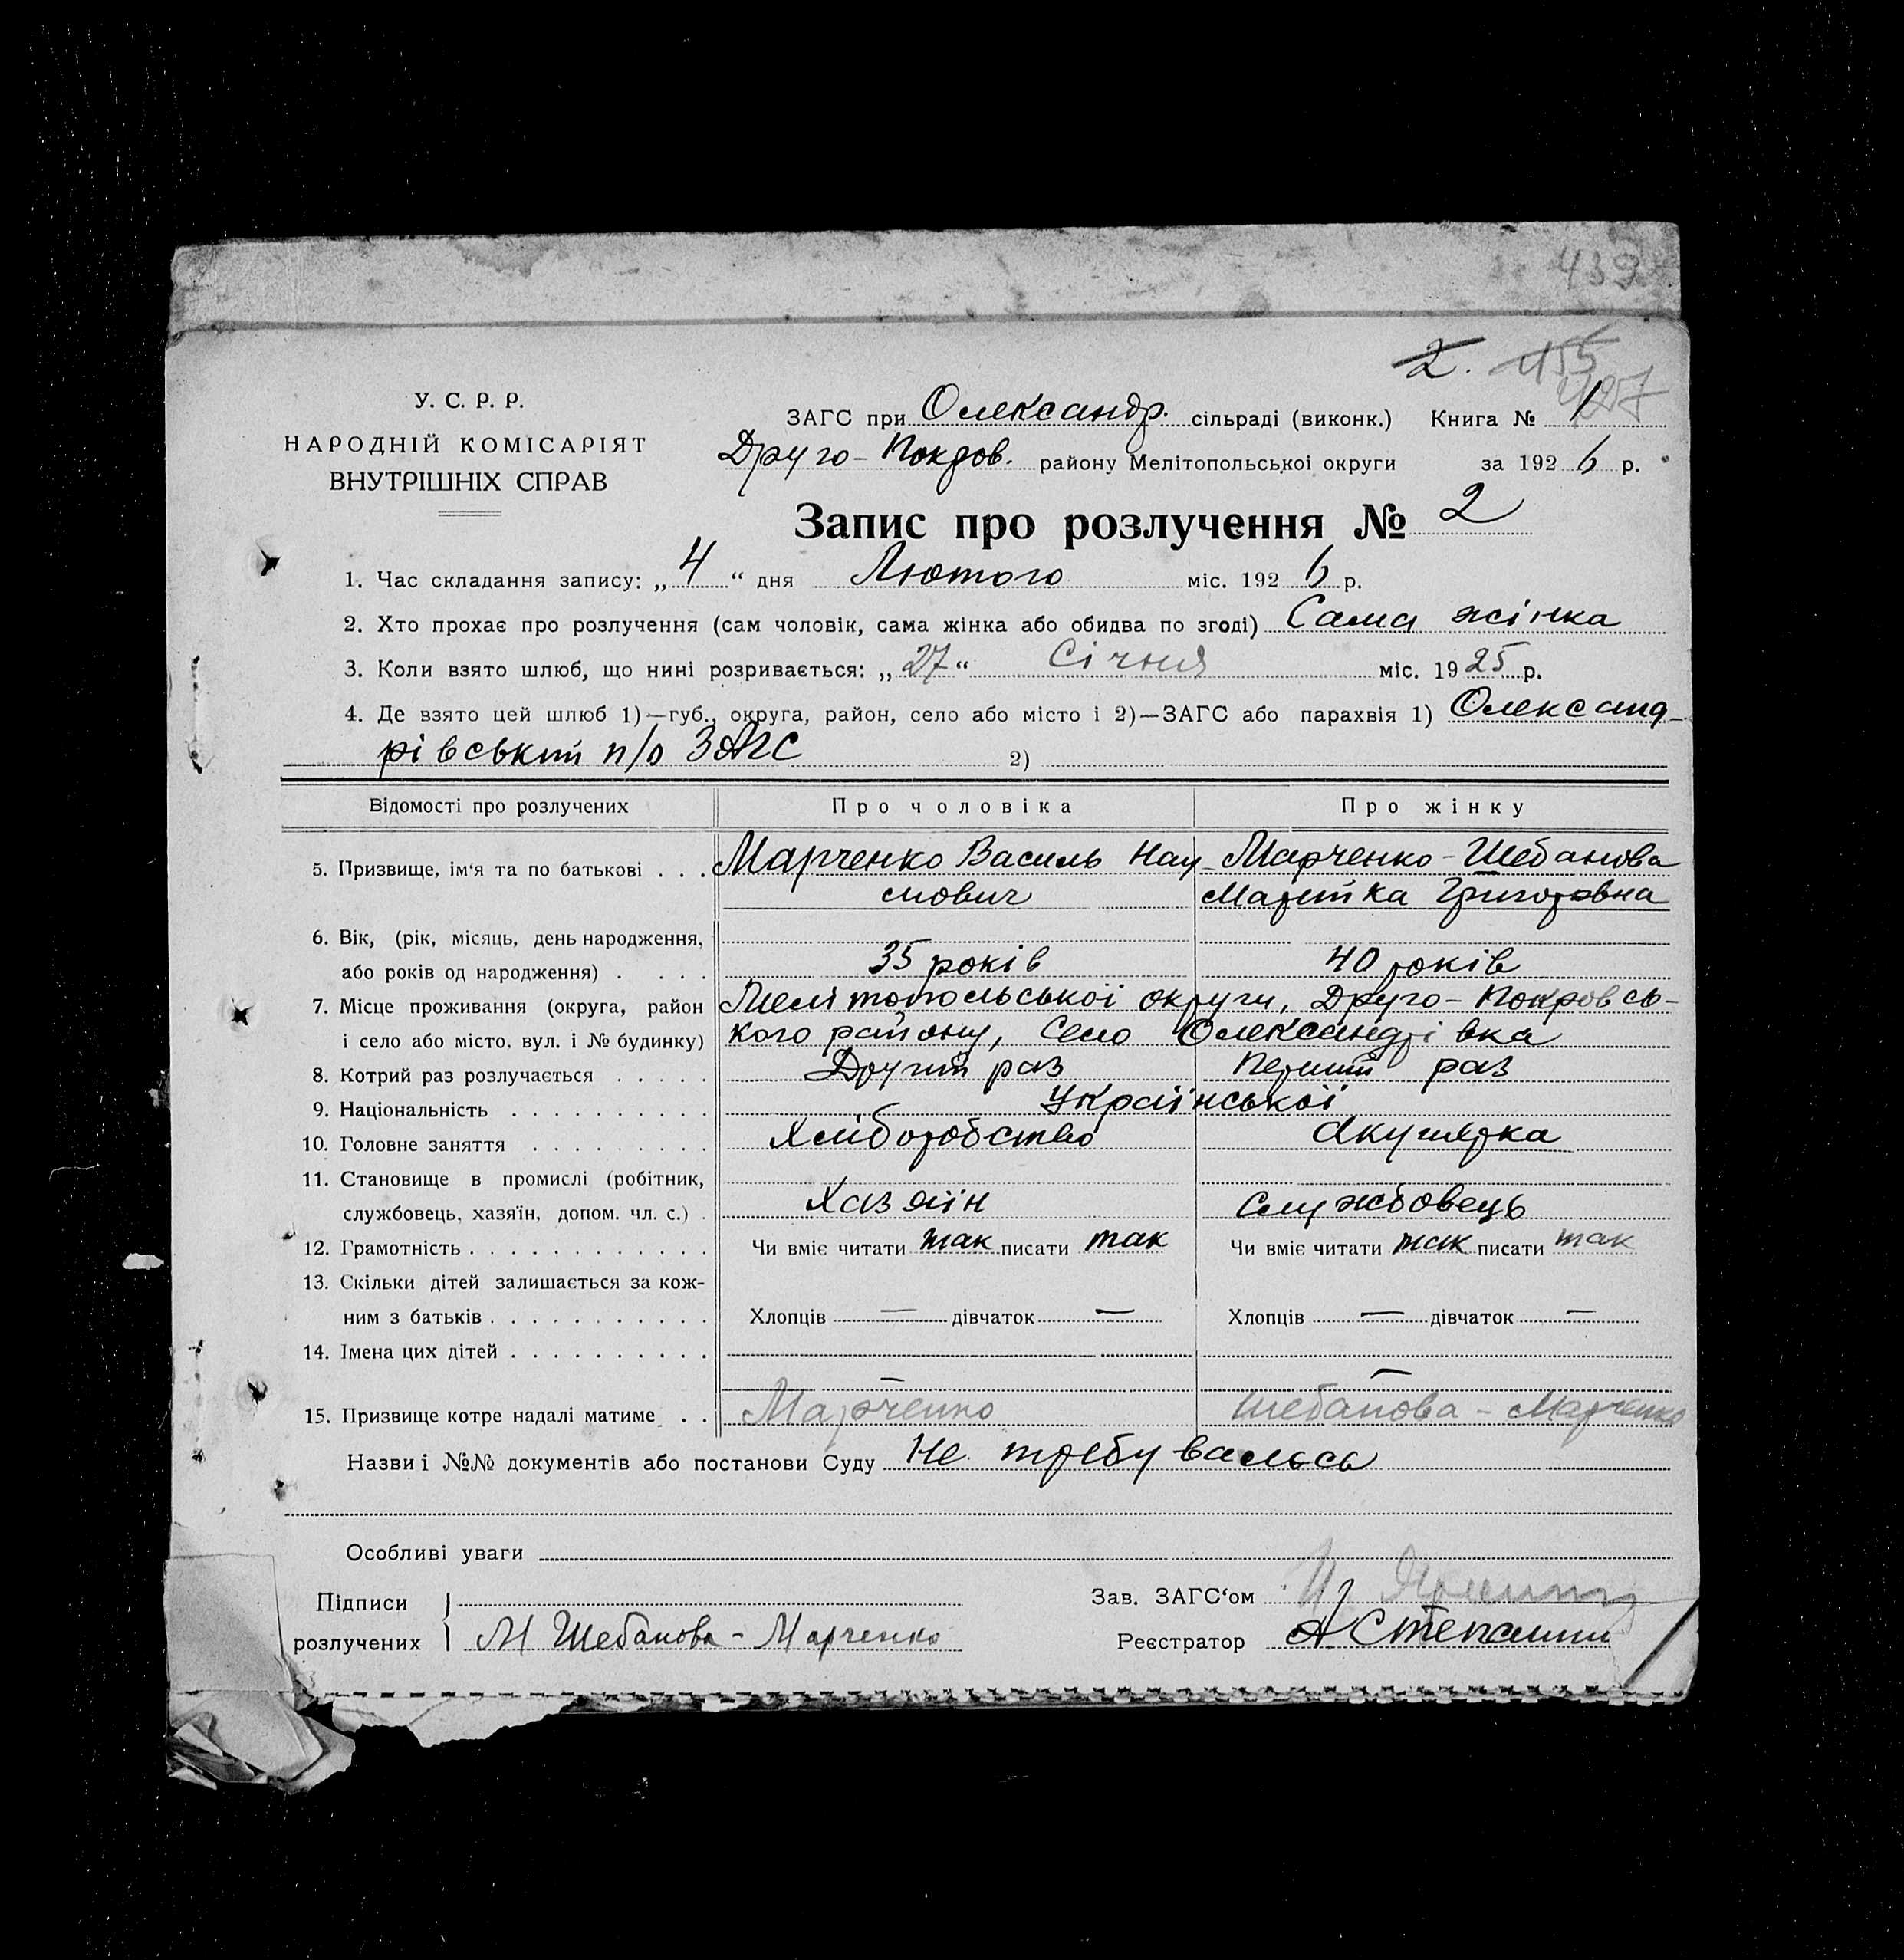 439
2. 455
427
У. С. Р. Р.
НАРОДНІЙ КОМІСАРІЯТ
ВНУТРІШНІХ СПРАВ
ЗАГС при Олександр. сільраді (виконк.) Книга № 1
Друго-Покров. району Мелітопольської округи за 1926 р.
Запис про розлучення № 2
1. Час складання запису: „4“ дня Лютого міс. 1926 р.
2. Хто прохає про розлучення (сам чоловік, сама жінка або обидва по згоді) Сама жінка
3. Коли взято шлюб, що нині розривається: „27“ Січня міс. 1925 р.
4. Де взято цей шлюб 1)—губ., округа, район, село або місто і 2)—ЗАГС або парахвія 1) Олександ-
рівський п/о ЗАГС 2)
Відомості про розлучених Про чоловіка Про жінку
5. Призвище, ім‘я та по батькові . . . Марченко Василь Нау- Марченко-Шебанова
мович Марійка Григоровна
6. Вік, (рік, місяць, день народження,
або років од народження) . . . . 35 років 40 років
7. Місце проживання (округа, район Мелітопольської округи, Друго-Покровсь-
і село або місто, вул. і № будинку) кого району, село Олександрівка
8. Котрий раз розлучається . . . . . Другий раз Перший раз
9. Національність . . . . . . . . . . Української
10. Головне заняття . . . . . . . . . Хліборобство Акушерка
11. Становище в промислі (робітник,
службовець, хазяїн, допом. чл. с.) . Хазяїн Службовець
12. Грамотність . . . . . . . . . . . . Чи вміє читати так писати так Чи вміє читати так писати так
13. Скільки дітей залишається за кож-
ним з батьків . . . . . . . . . . . Хлопців — дівчаток — Хлопців — дівчаток —
14. Імена цих дітей . . . . . . . . . .
— —
15. Призвище котре надалі матиме . . Марченко Шебанова-Марченко
Назви і №№ документів або постанови Суду Не требувалось
Особливі уваги
Підписи
розлучених М Шебанова-Марченко
Зав. ЗАГС‘ом
Реєстратор